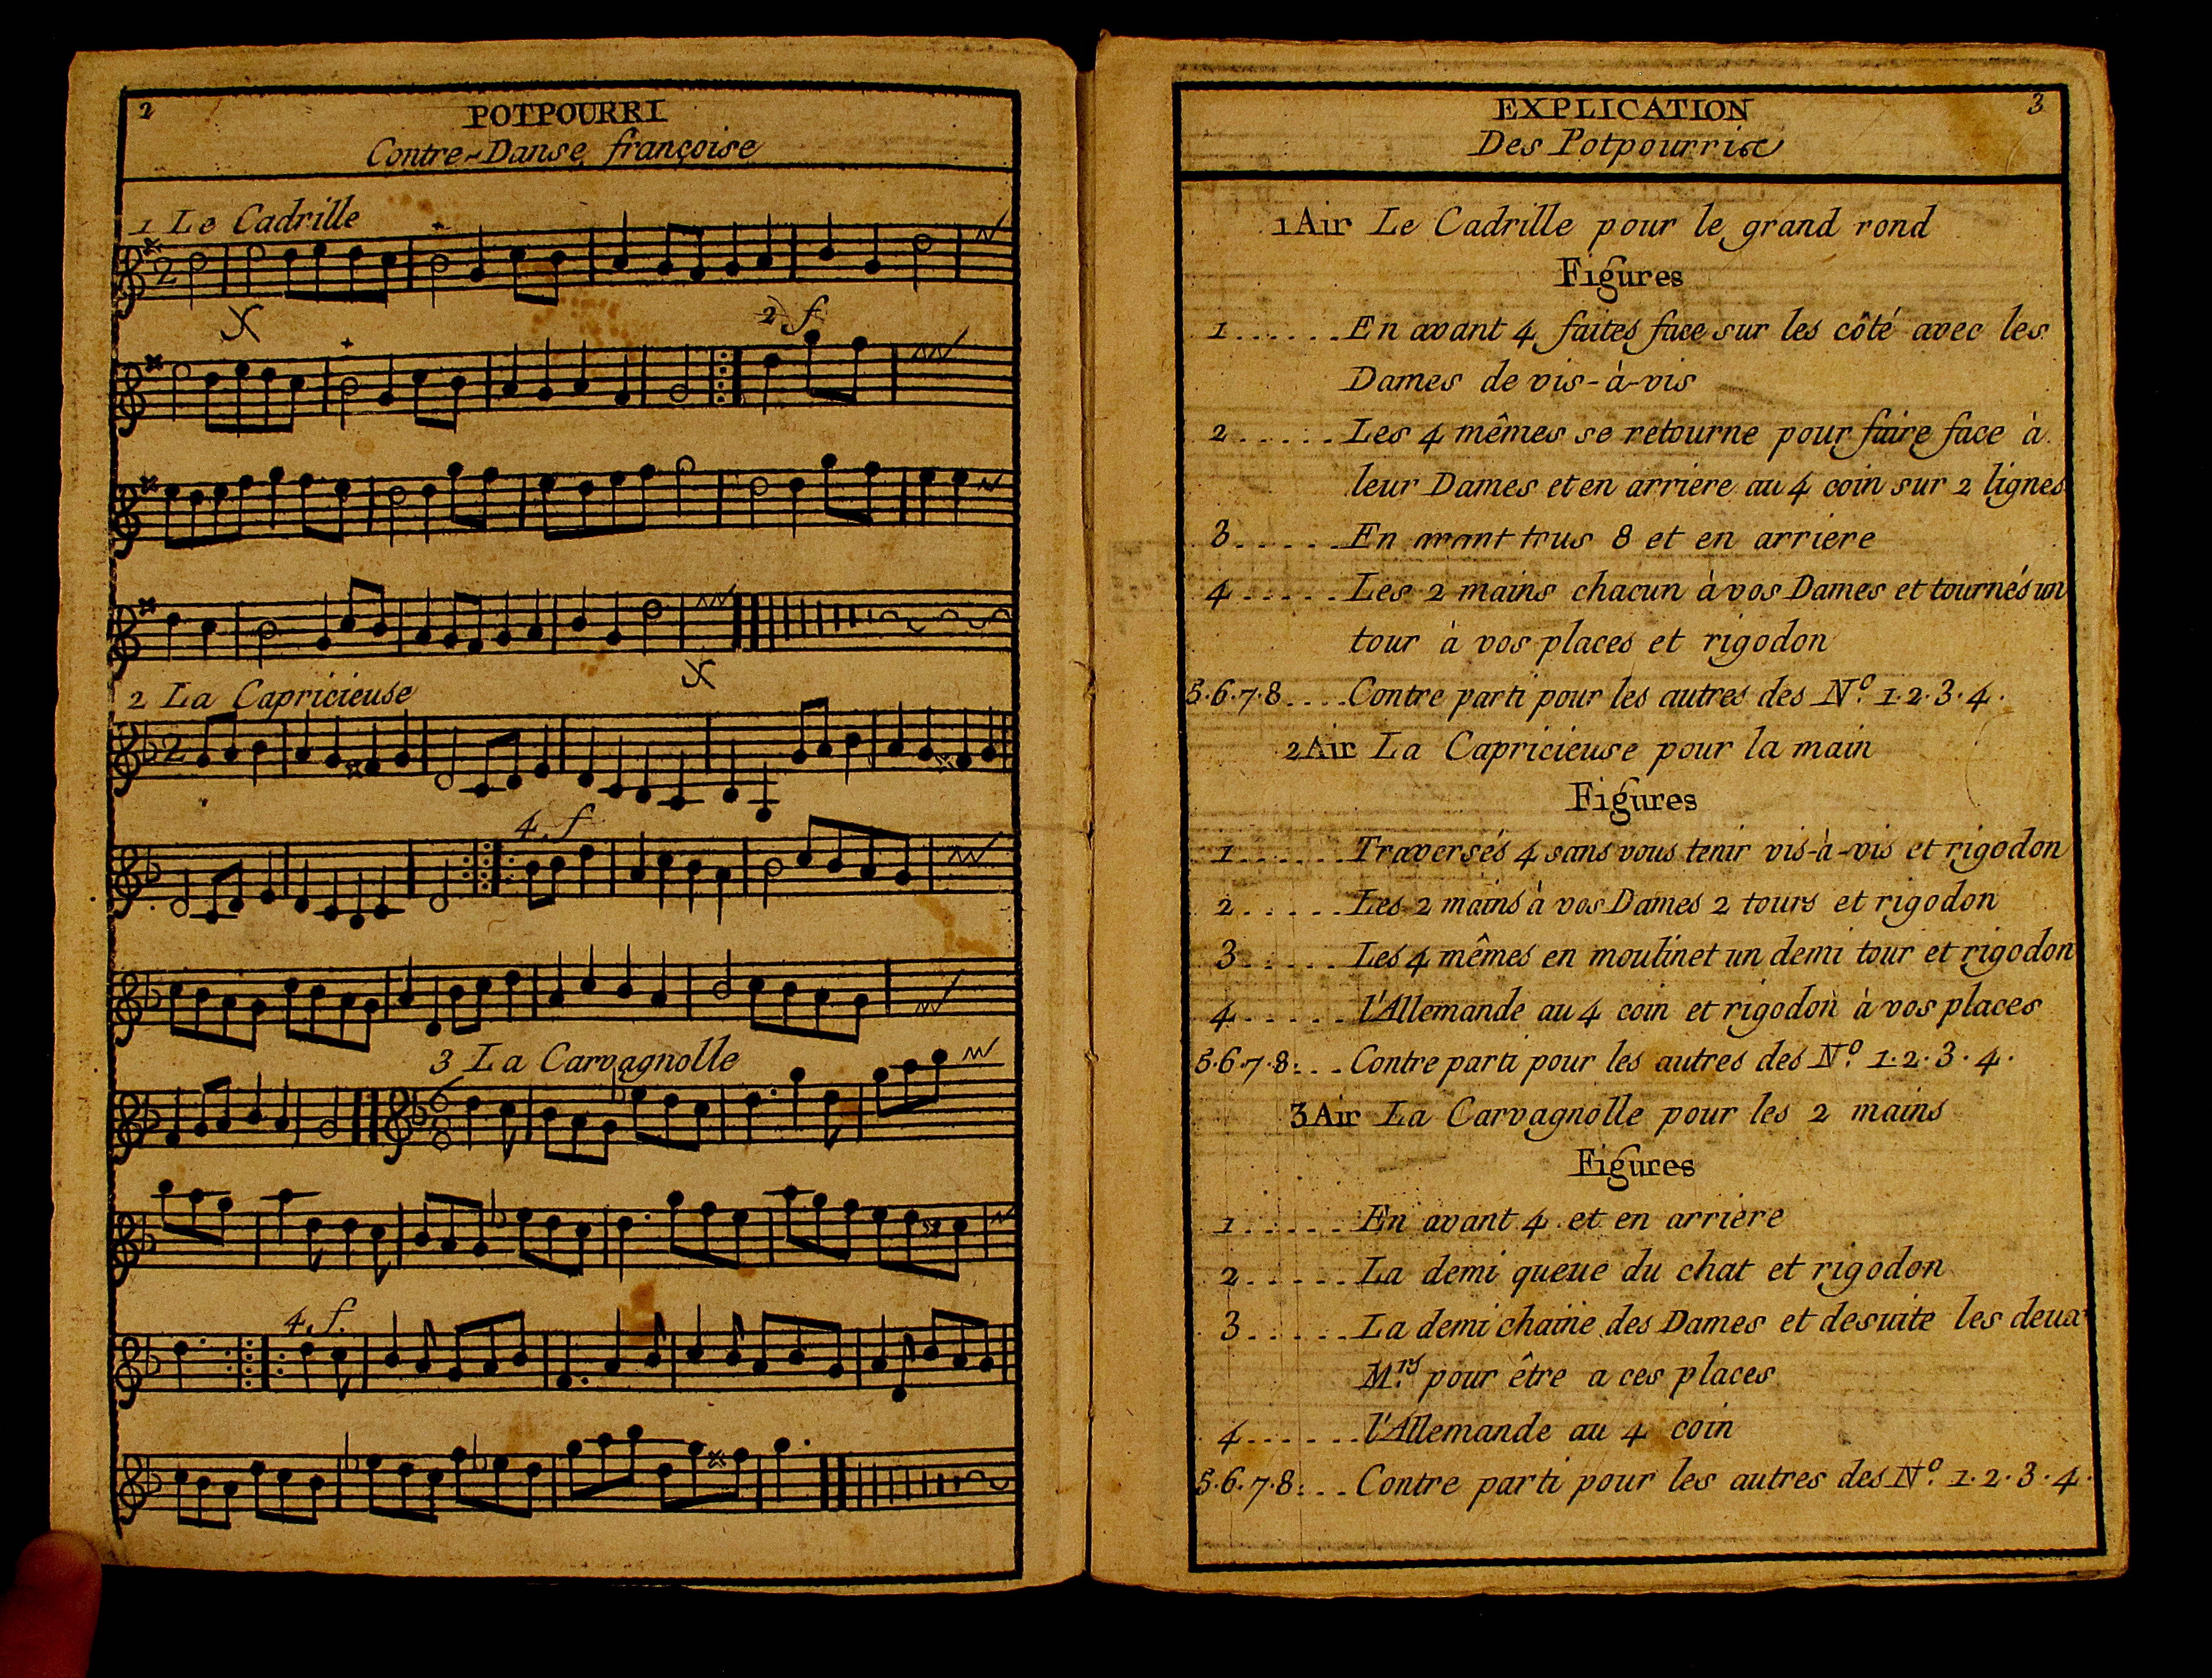 2
POTPOURRI
Contre-Danse françoise
1 Le Cadrille
2 f
2 La Capricieuse
4. f
3 La Carvagnolle
4. f.
EXPLICATION 3
Des Potpourrix
1 Air Le Cadrille pour le grand rond
Figures
1......En avant 4 faites face sur les côté avec les
Dames de vis-à-vis
2.....Les 4 mêmes se retourne pour faire face à
leur Dames et en arriere au 4 coin sur 2 lignes
3.....En avant tous 8 et en arriere
4.....Les 2 mains chacun à vos Dames et tournés un
tour à vos places et rigodon
5.6.7.8....Contre parti pour les autres des N.º 1.2.3.4.
2 Air La Capricieuse pour la main
Figures
1......Traversés 4 sans vous tenir vis-à-vis et rigodon
2.....Les 2 mains à vos Dames 2 tours et rigodon
3.....Les 4 mêmes en moulinet un demi tour et rigodon
4.....l'Allemande au 4 coin et rigodon à vos places
5.6.7.8...Contre parti pour les autres des N.º 1.2.3.4.
3 Air La Carvagnolle pour les 2 mains
Figures
1......En avant 4 et en arriere
2.....La demi queue du chat et rigodon
3.....La demi chaine des Dames et desuite les deux
M.rs pour être a ces places
4......l'Allemande au 4 coin
5.6.7.8...Contre parti pour les autres des N.º 1.2.3.4.